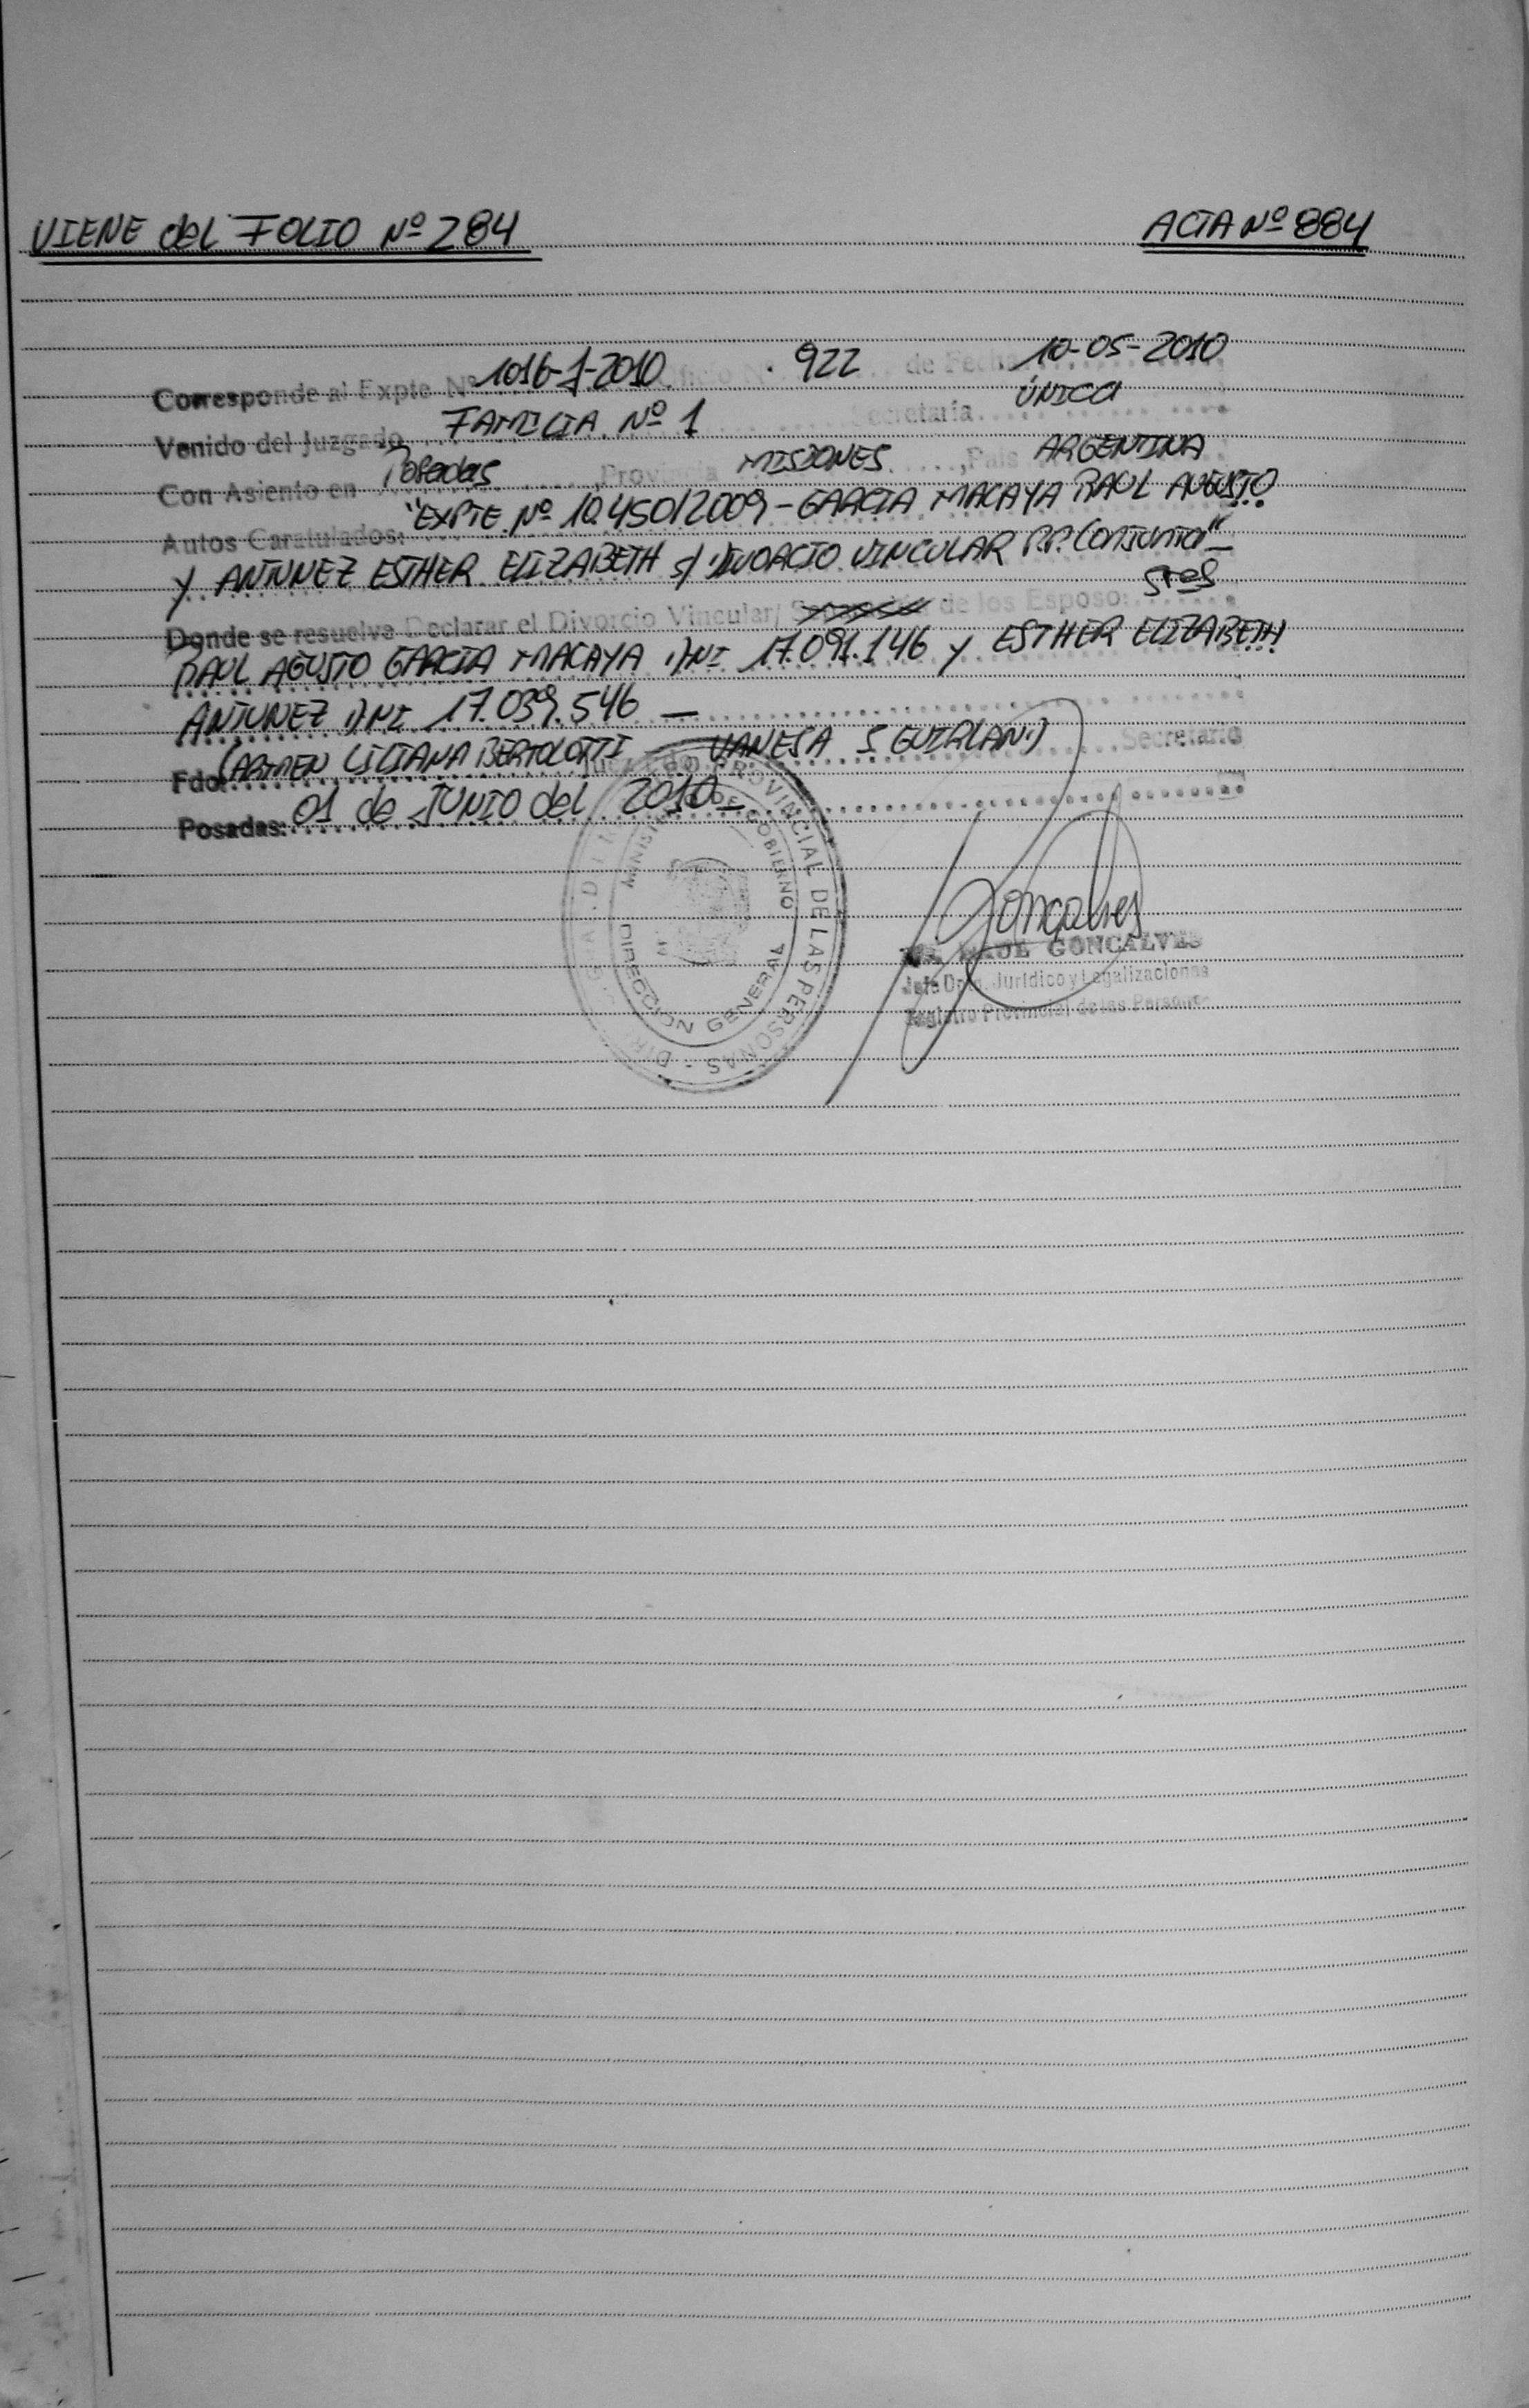 VIENE del FOLIO Nº 284 ACTA Nº 884
Corresponde al Expte. Nº 1016-J-2010 Oficio N 922 de Fecha 10-05-2010
Venido del Juzgado FAMILIA Nº 1 Secretaría ÚNICA
Con Asiento en Posadas, Provincia MISIONES, País ARGENTINA
Autos Caratulados: "EXPTE Nº 10.450/2009 - GARCIA MACAYA RAUL AUGUSTO
Y ANTUNEZ ESTHER ELIZABETH s/ DIVORCIO VINCULAR P.P. Conjunta"
Donde se resuelve Declarar el Divorcio Vincular/ de los Esposo: sres
RAUL AGUSTO GARCIA MACAYA DNI 17.091.146 y ESTHER ELIZABETH
ANTUNEZ DNI 17.039.546 —
Fdo: CARMEN LILIANA BERTOLOTTI — VANESA S GUIRLAND Secretario
Posadas: 01 de JUNIO del 2010 —
PROVINCIAL DE LAS PERSONAS - DIR
MINISTERIO DE GOBIERNO
DIRECCION GENERAL
Gonçalves
GONCALVES
Jefe Dpto. Jurídico y Legalizaciones
Registro Provincial de las Personas